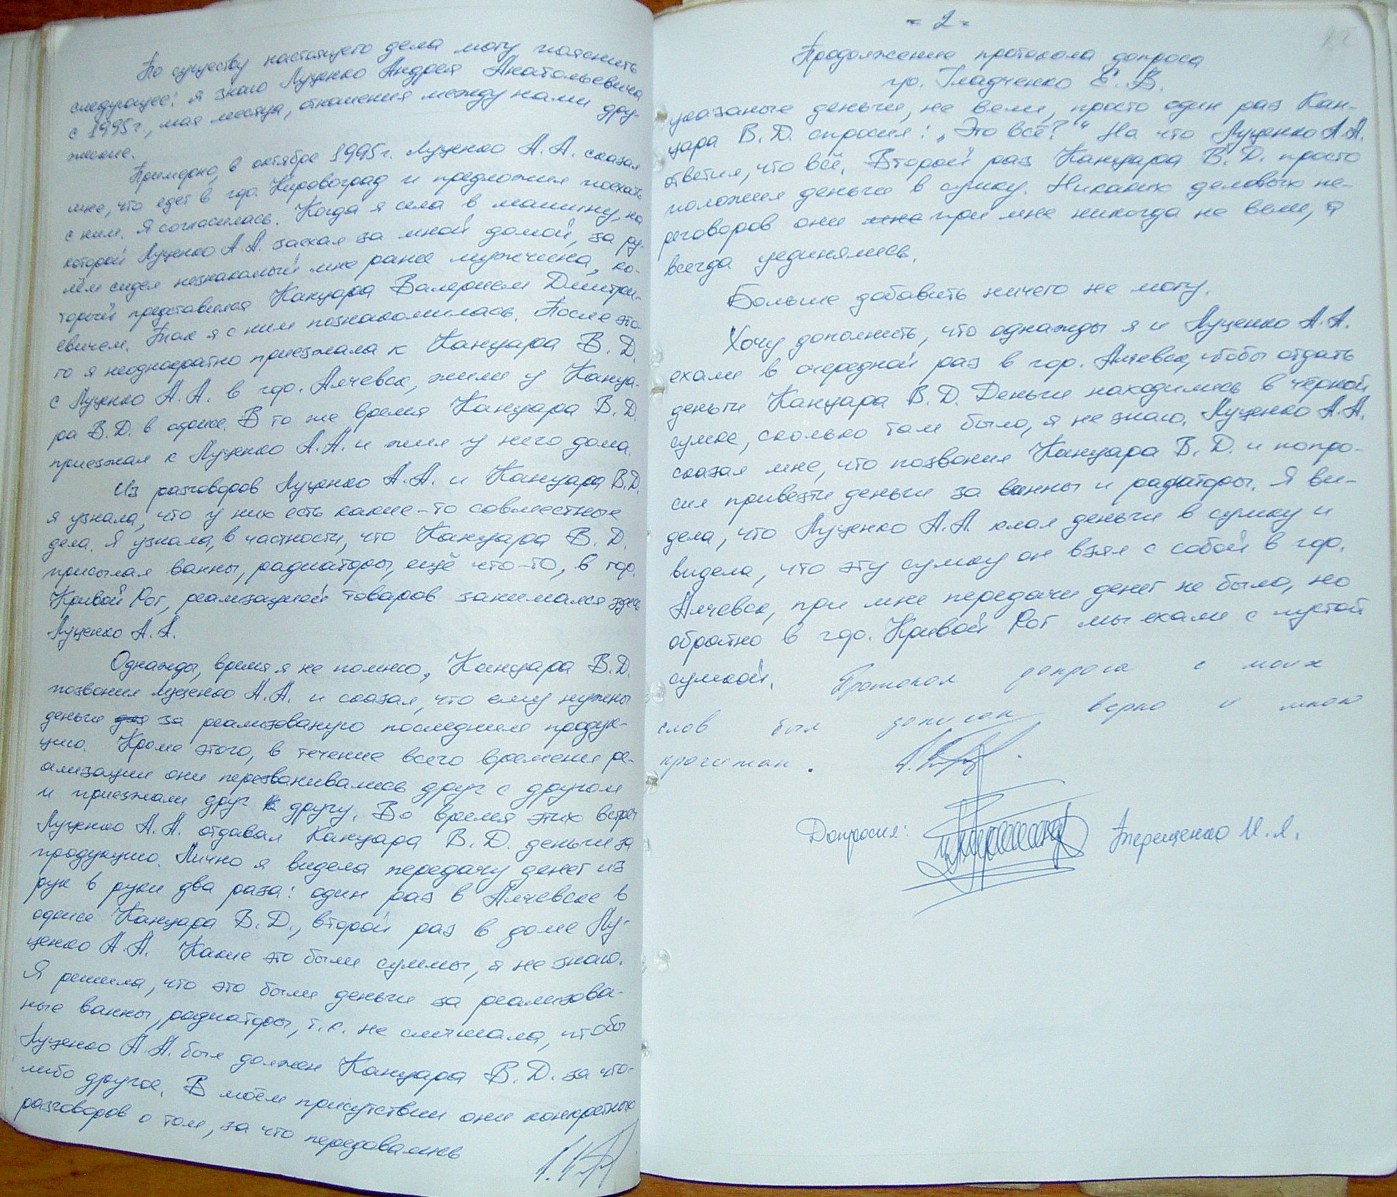 По существу настоящего дела могу пояснить
следующее: я знаю Луценко Андрея Анатольевича
с 1995г., мая месяца, отношения между нами дру-
жеские.
Примерно, в октябре 1995г. Луценко А.А. сказал
мне, что едет в гор. Кировоград и предложил поехать
с ним. Я согласилась. Когда я села в машину, на
которой Луценко А.А. заехал за мной домой, за ру-
лём сидел незнакомый мне ранее мужчина, ко-
торый представился Канцара Валерием Дмитри-
евичем. Так я с ним познакомилась. После это-
го я неоднократно приезжала к Канцара В.Д.
с Луценко А.А. в гор. Алчевск, жили у Канца-
ра В.Д. в офисе. В то же время Канцара В.Д.
приезжал к Луценко А.А. и жил у него дома.
Из разговоров Луценко А.А. и Канцара В.Д.
я узнала, что у них есть какие-то совместные
дела. Я узнала, в частности, что Канцара В.Д.
присылал ванны, радиаторы, ещё что-то, в гор.
Кривой Рог, реализацией товаров занимался здесь
Луценко А.А.
Однажды, время я не помню, Канцара В.Д.
позвонил Луценко А.А. и сказал, что ему нужны
деньги за реализованую последнюю продук-
цию. Кроме этого, в течение всего времени ре-
ализации они перезванивались друг с другом
и приезжали друг к другу. Во время этих встреч
Луценко А.А. отдавал Канцара В.Д. деньги за
продукцию. Лично я видела передачу денег из
рук в руки два раза: один раз в Алчевске в
офисе Канцара В.Д., второй раз в доме Лу-
ценко А.А. Какие это были суммы, я не знаю.
Я решила, что это были деньги за реализова-
ные ванны, радиаторы, т.к. не слышала, чтобы
Луценко А.А. был должен Канцара В.Д. за что-
либо другое. В моём присутствии они конкретных
разговоров о том, за что передавались
- 2 -
Продолжение протокола допроса
гр. Гладченко Е.В.
указаные деньги, не вели, просто один раз Кан-
цара В.Д. спросил: „Это всё?" На что Луценко А.А.
ответил, что всё. Второй раз Канцара В.Д. просто
положил деньги в сумку. Никаких деловых пе-
реговоров они при мне никогда не вели, а
всегда уединялись.
Больше добавить ничего не могу.
Хочу дополнить, что однажды я и Луценко А.А.
ехали в очередной раз в гор. Алчевск, чтобы отдать
деньги Канцара В.Д. Деньги находились в чёрной
сумке, сколько там было, я не знаю. Луценко А.А.
сказал мне, что позвонил Канцара В.Д. и попро-
сил привезти деньги за ванны и радиаторы. Я ви-
дела, что Луценко А.А. клал деньги в сумку и
видела, что эту сумку он взял с собой в гор.
Алчевск, при мне передачи денег не было, но
обратно в гор. Кривой Рог мы ехали с пустой
сумкой. Протокол допроса с моих
слов был записан верно и мною
прочитан.
Допросил: Терещенко И.Я.